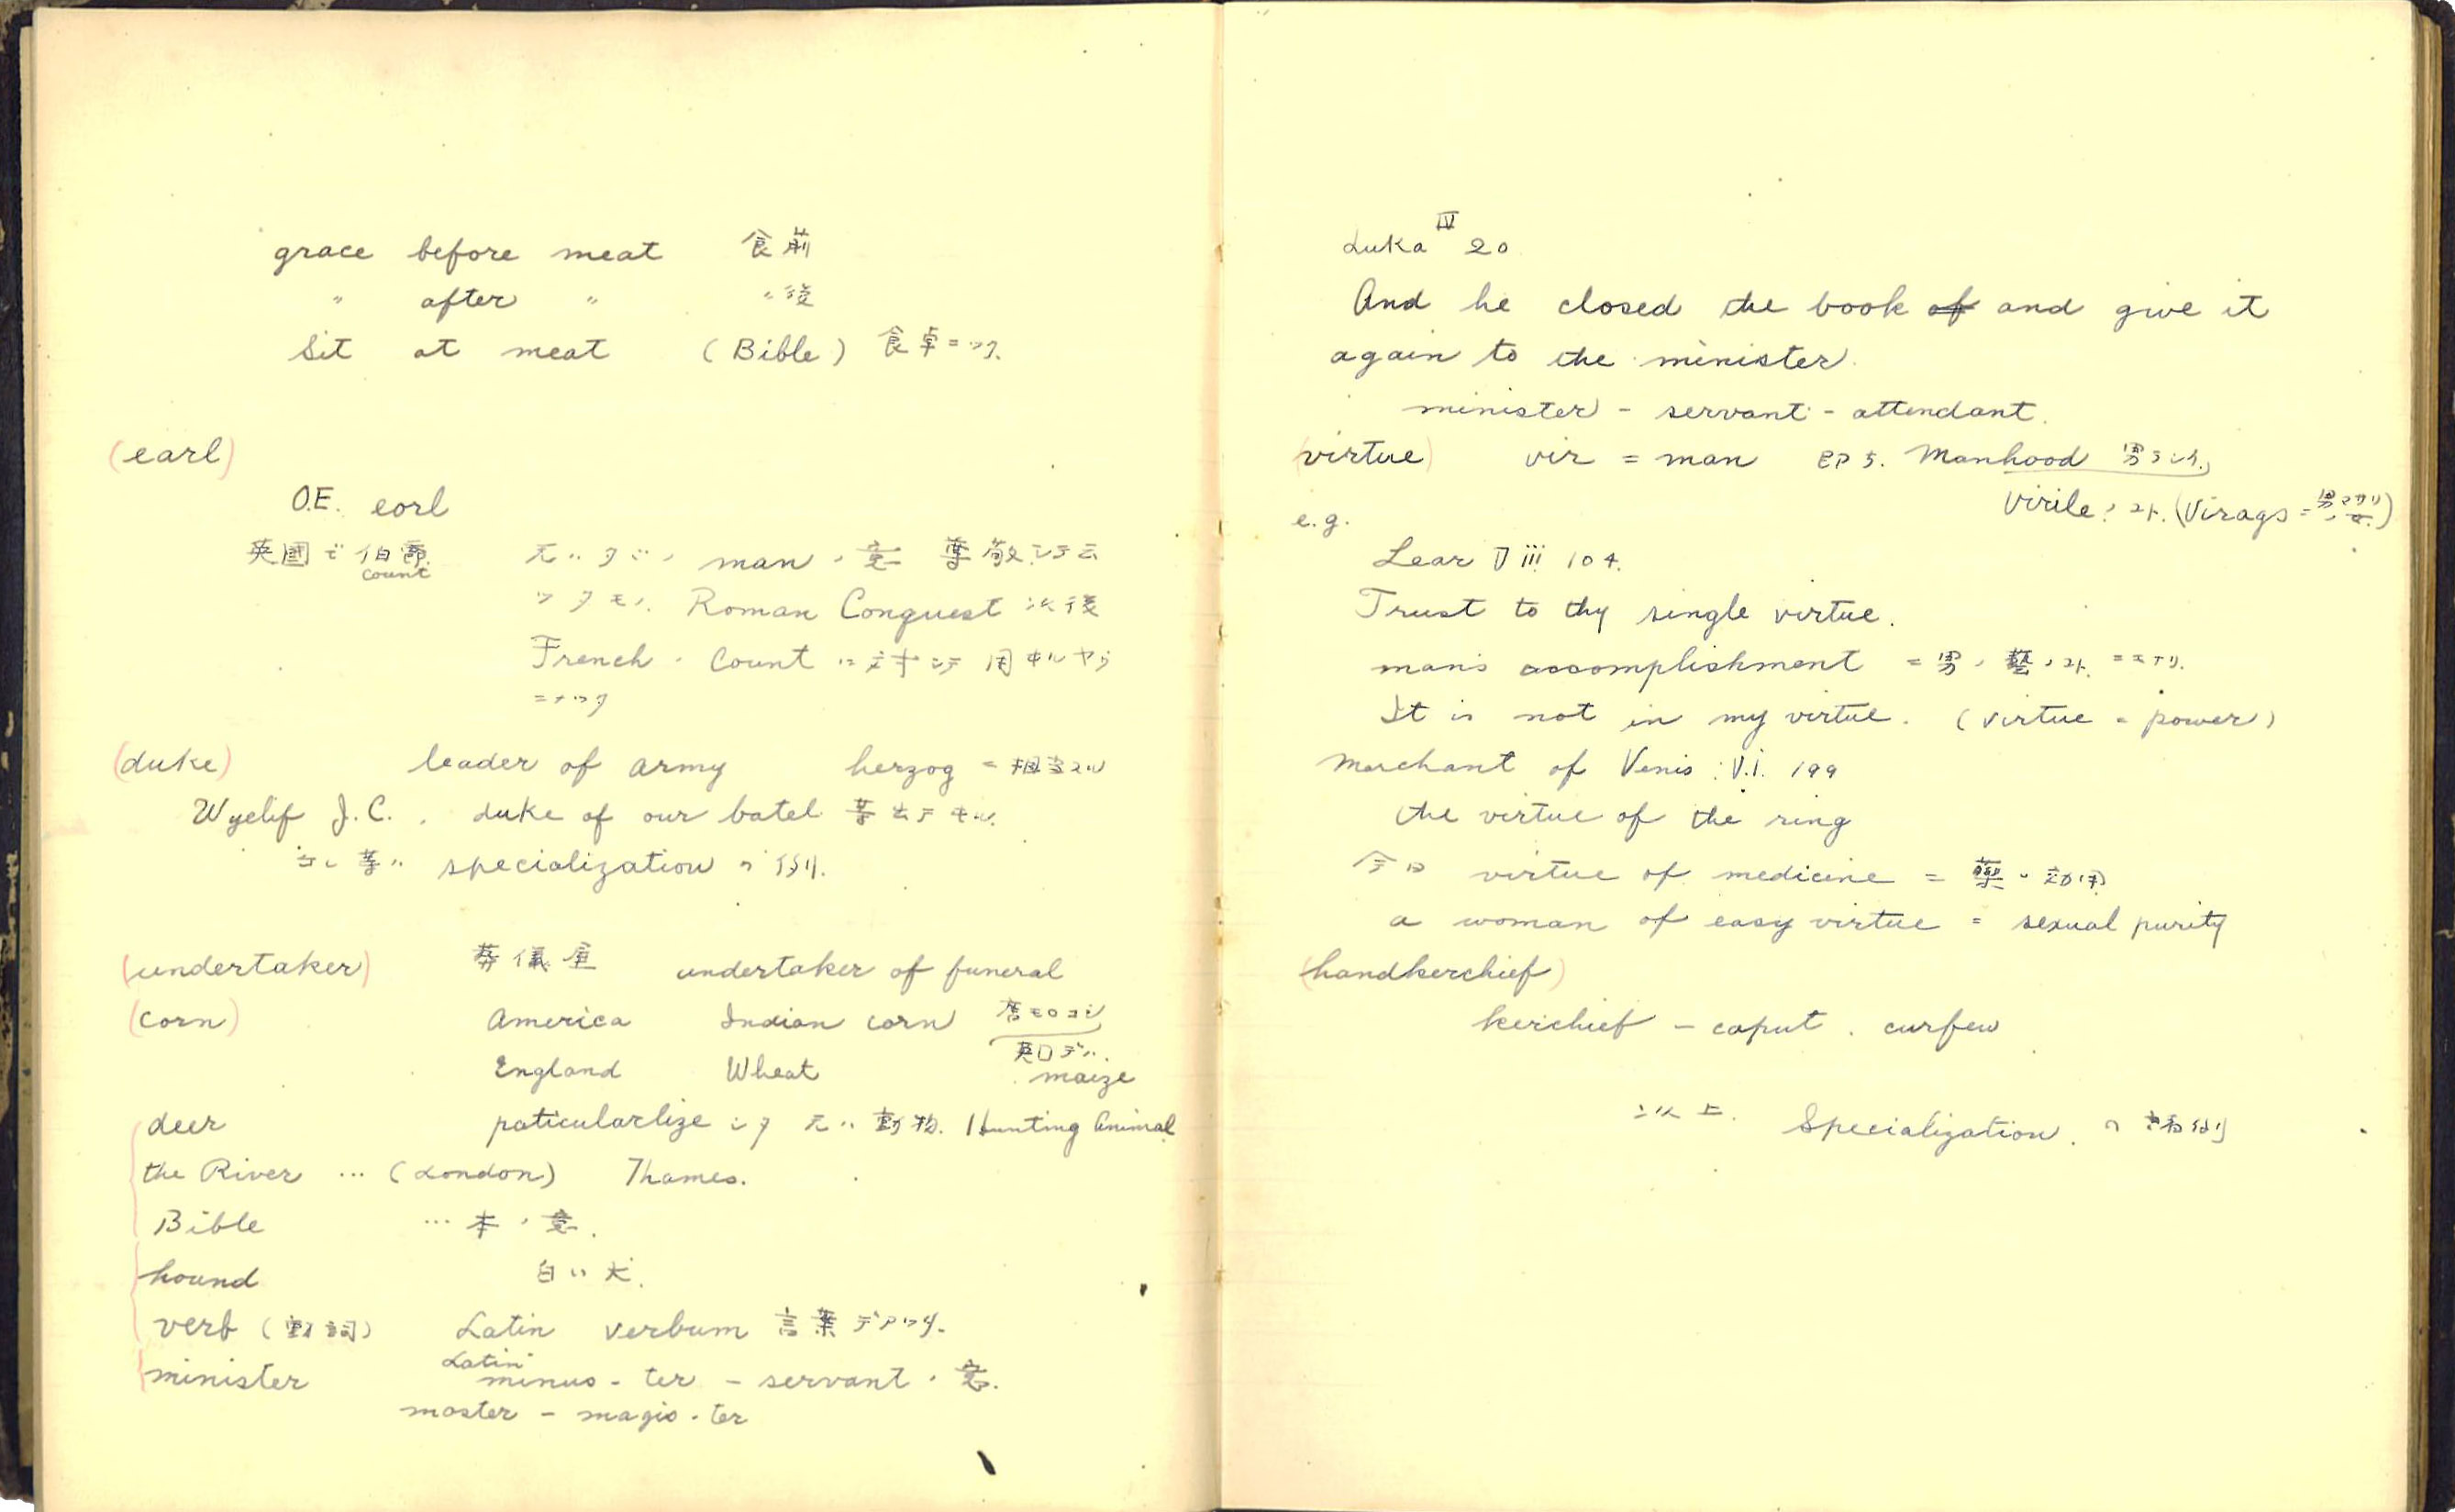 grace before meat 食前
〃 after 〃 〃後
Sit at meat (Bible) 食卓ニツク.
(earl)
O.E. eorl
英國デ伯爵 元ハタダノ man ノ意 尊敬シテ云
count
ツタモノ. Roman Conquest 以後
French ノ Count ニ対シテ用キル
ニナツタ
(duke) leader of army herzog = 相当スル
Wyclif J.C. . duke of our batel
等ハ specialization ノ例.
(undertaker) 葬儀屋 undertaker of funeral
(corn) America Indian corn 唐モロコシ
England Wheat 英国デハ.
maize
deer paticularlize シタ 元ハ動物. Hunting Animal
the River … (London) Thames.
Bible … 本ノ意.
hound 犬.
verb (動詞) Latin verbum 言葉デアツタ.
Latin
minister minus - ter - servant ノ意.
master - magis - ter
Luka IV 20
And he closed the book of and give it
again to the minister.
minister - servant - attendant.
(virtue) vir = man 即チ. Manhood 男ラシサ.
Virile ノコト. (Virags = 男マサリノ女.)
e.g.
Lear V iii 104.
Trust to thy single virtue.
man's accomplishment = 男ノ藝ノコト.
It is not in my virtue. (virtue = power)
Merchant of Venis : V.i. 199
the virtue of the ring
今日 virtue of medicine = 藥ノ効用
a woman of easy virtue = sexual purity
(handkerchief)
kerchief - caput . curfew
以上. Specialization. ノ